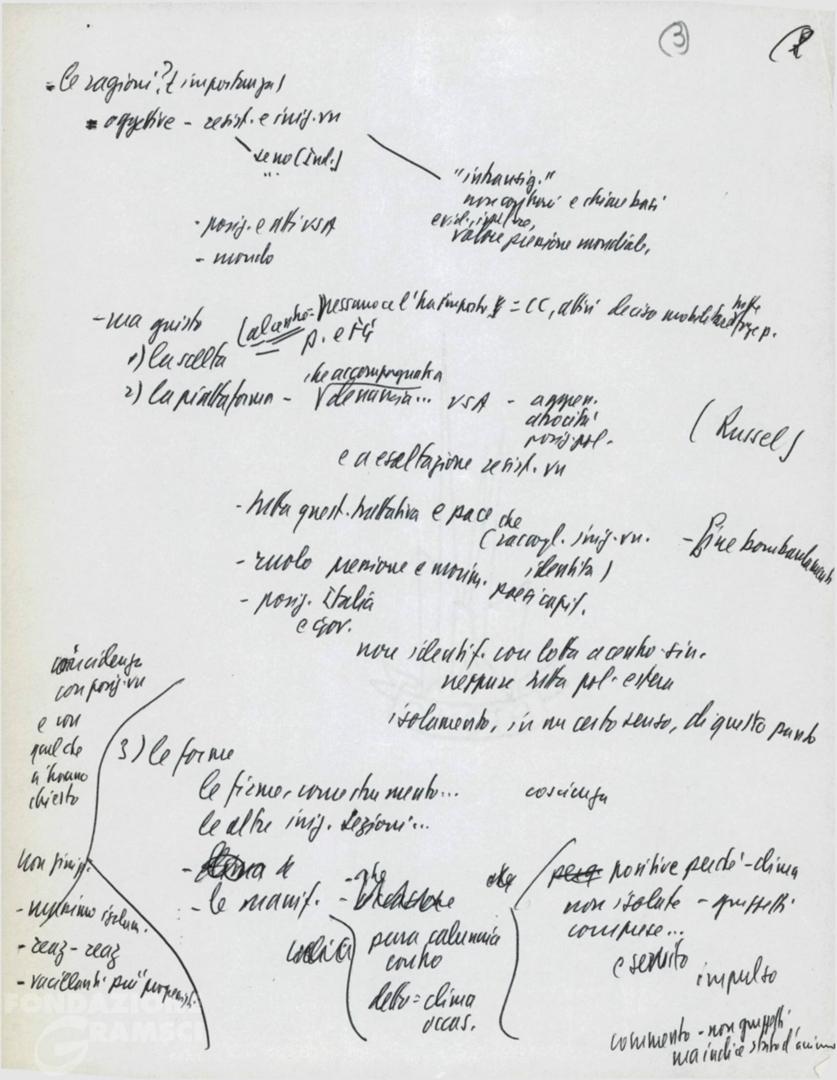 ③
- le ragioni? (importanza)
- oggettive - resist. e iniz. vn
seno (ind.)
"intransig."
non
e chiare basi
valore pressione mondiale,
- posiz. e atti vsA
- mondo
- ma giusto
(al centro = nessuno ce l'ha imposto = CC, altri deciso
p. e FG
1) la scelta
2) la piattaforma - denuncia... vsA - aggres.
che accompagnata
atrocità
posiz. pol.
(Russel)
e a esaltazione resist. vn
- tutta quest. trattativa e pace che
(raccogl. iniz. vn. - fine bombardamenti
identità)
- ruolo pressione e movim. paesi capit.
- posiz. Italia
e gov.
non identif. con lotta a centro-sin.
neppure tutta pol. estera
isolamento, in un certo senso, di questo punto
coincidenza
con posiz. vn
e con
quel che
ci hanno
chiesto
3) le forme
le firme, come strumento... coscienza
le altre iniz. sezioni...
- le manif. - che
pura calunnia
contro
detto = clima
occas.
positive perché - clima
non isolate - gruppetti
comprese...
e servito
impulso
commento - non gruppetti
ma indice stato d'animo
non
- massimo isolam.
- reaz - reaz
- vacillanti più
FONDAZIONE
GRAMSCI